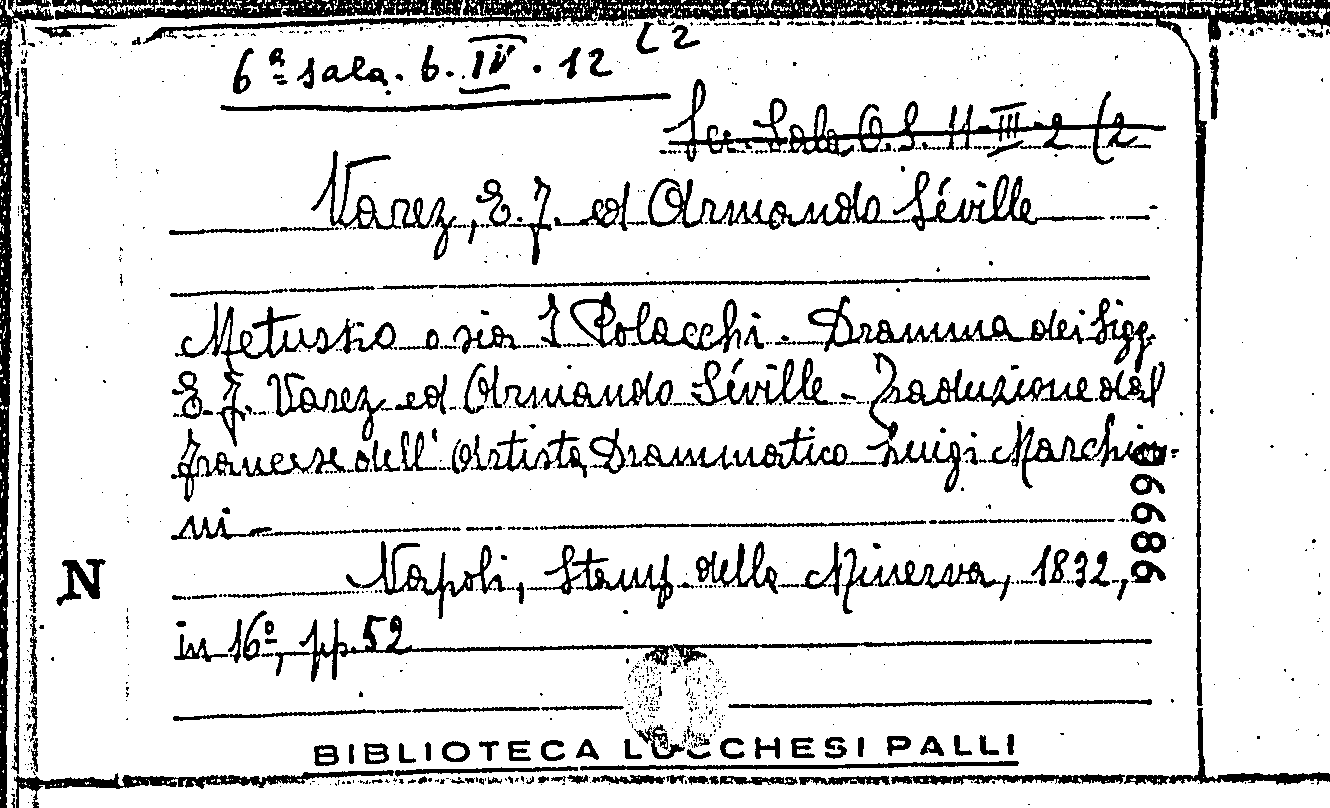 6ª sala. 6. IV. 12 (2
Scr. Sala O.S. 11-III-2 (2
Varez, E. J. ed Armando Séville
Metusko o sia I Polacchi. Dramma dei Sigg.
E. J. Varez ed Armando Séville - Traduzione dal
francese dell' Artista Drammatico Luigi Marchion-
ni -
Napoli, Stamp. della Minerva, 1832,
in 16º, pp. 52
N
06896
BIBLIOTECA LUCCHESI PALLI